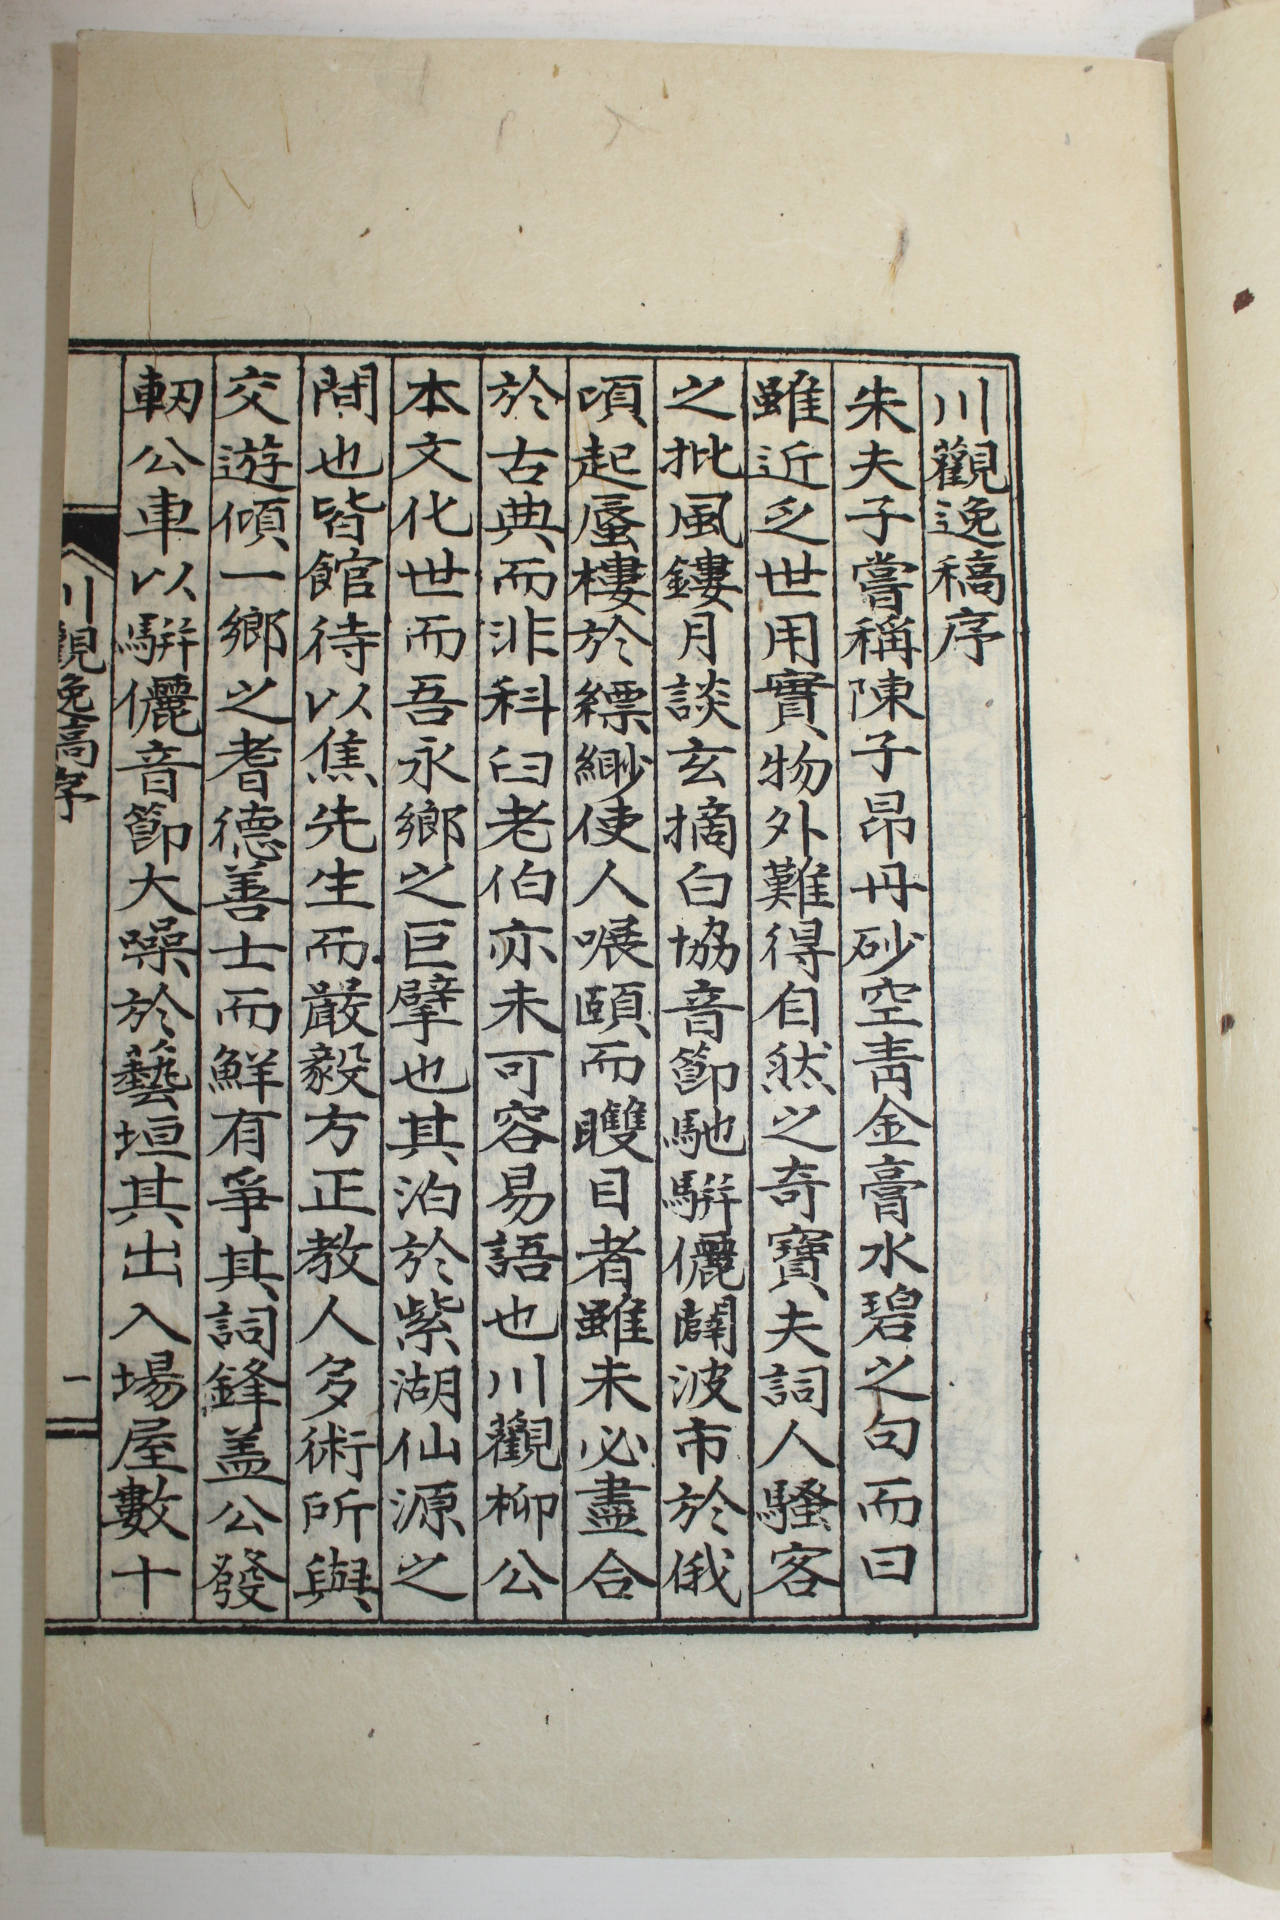 川觀逸稿序
朱夫子嘗稱陳子昂丹砂空靑金膏水碧之句而曰
雖近乏世用實物外難得自然之奇寶夫詞人騷客
之批風鏤月談玄摘白協音節馳騈儷闢波市於俄
頃起蜃樓於縹緲使人㗭頤而矍目者雖未必盡合
於古典而非科臼老伯亦未可容易語也川觀柳公
本文化世而吾永鄉之巨擘也其泊於紫湖仙源之
間也皆館待以焦先生而嚴毅方正教人多術所與
交遊傾一鄉之耆德善士而鮮有爭其詞鋒盖公發
軔公車以騈儷音節大噪於藝垣其出入場屋數十
川觀逸稿序
一